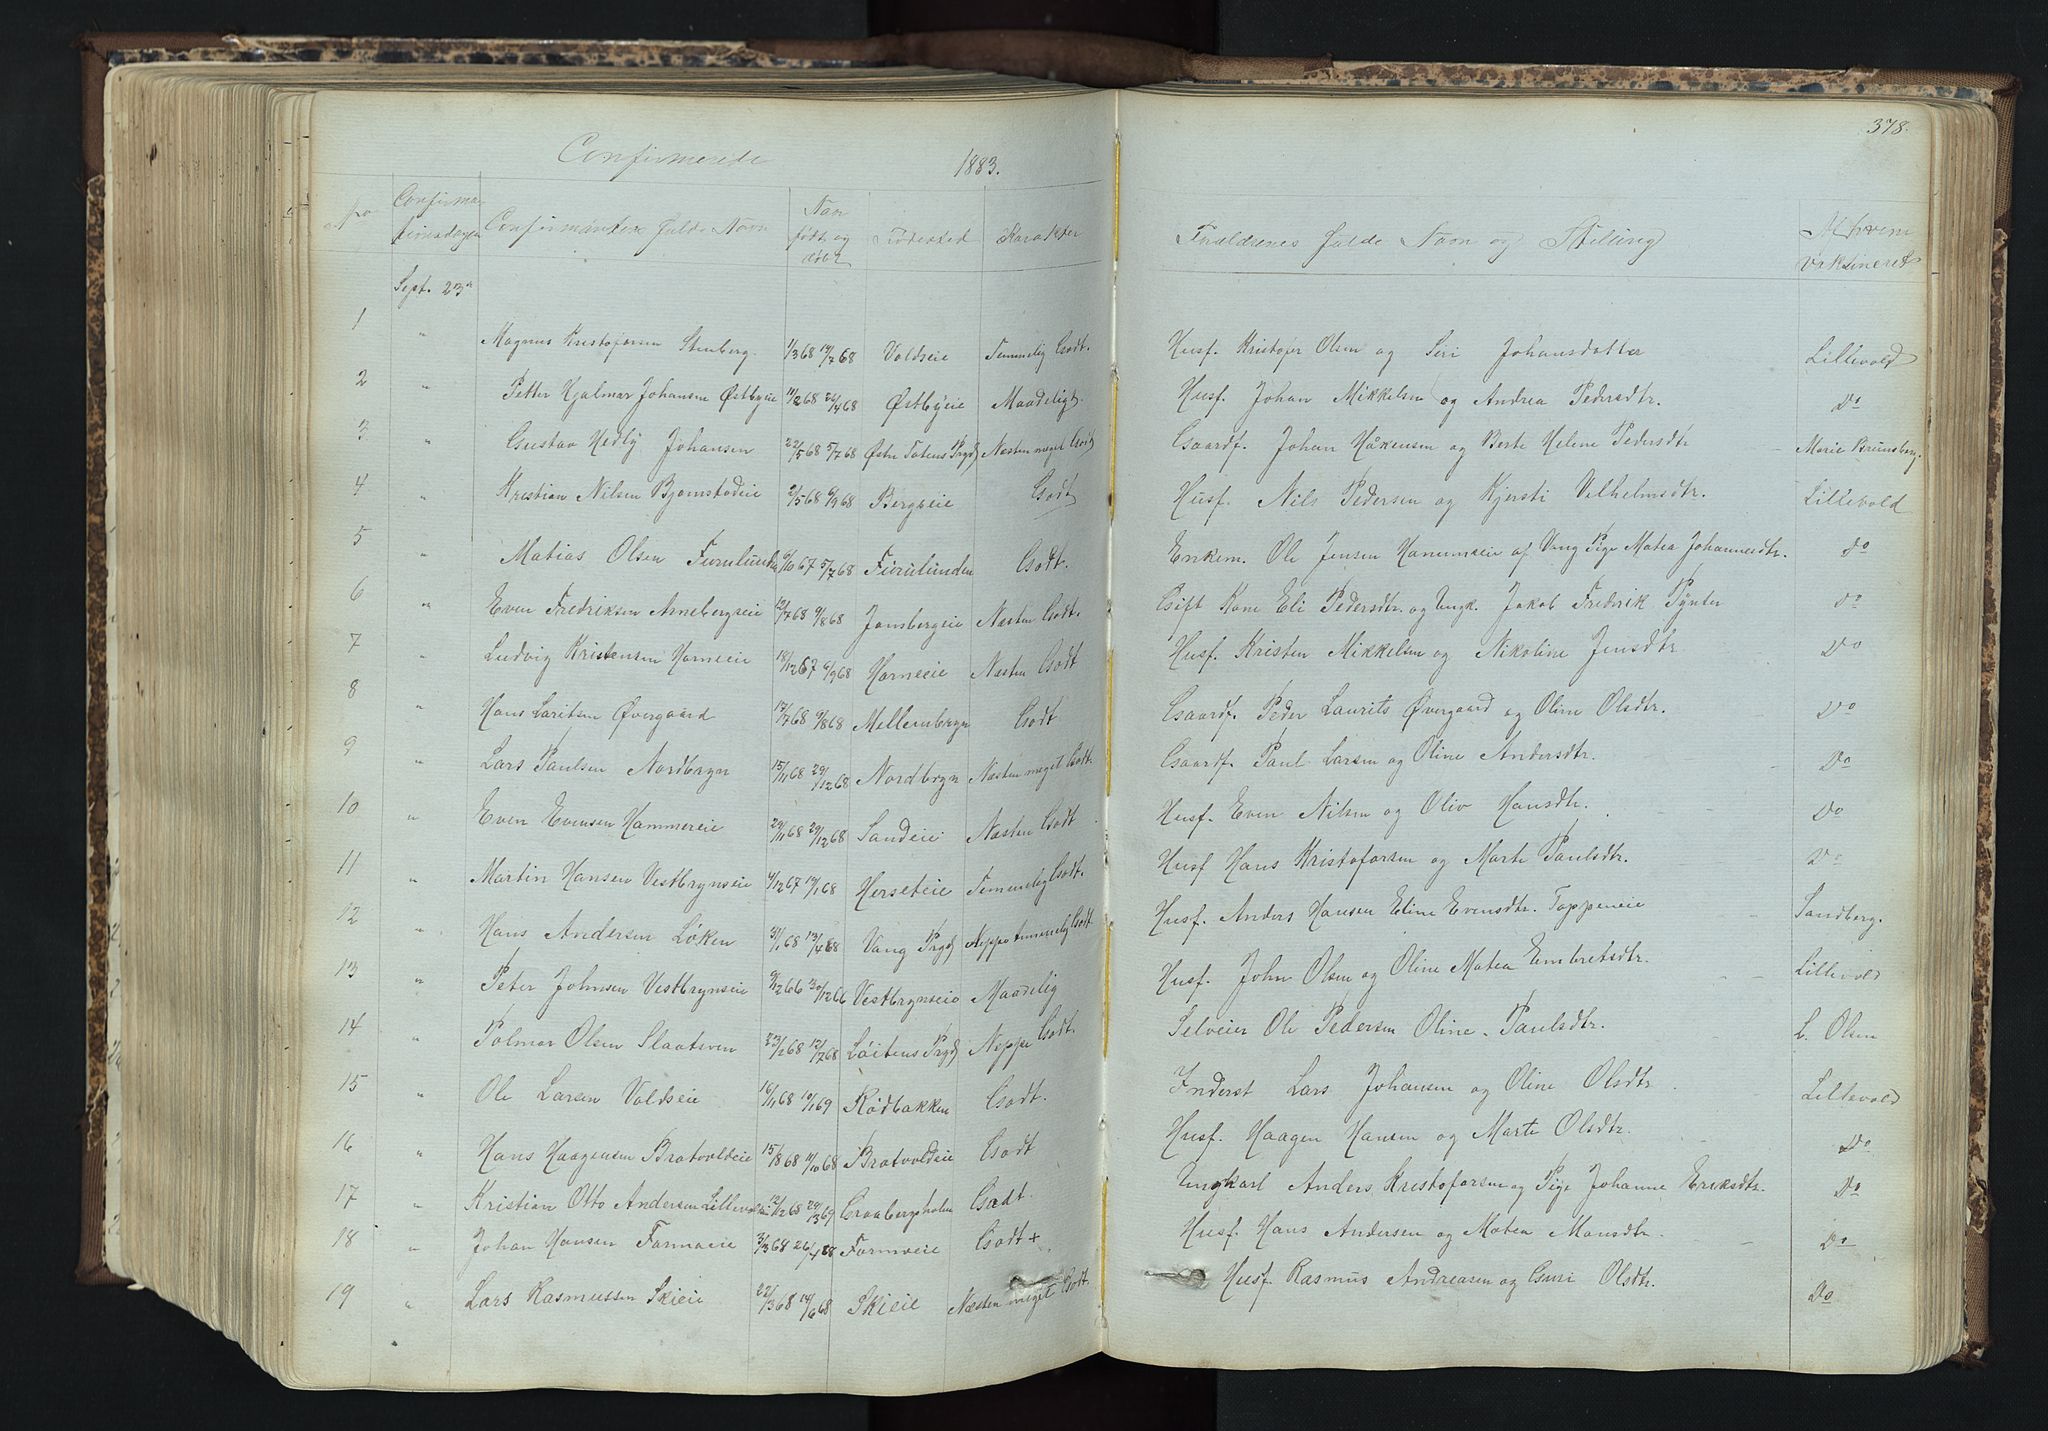 378.
Confirmerede 1883.
No Confirmationsdagen Confirmantens fulde Navn Naar født og døbt Fødested Karakter Forældrenes fulde Navn og Stilling Af hvem Vaksineret
Sept. 23
1 " Magnus Kristofersen Stenberg. 1/3 68 14/7 68 Voldseie Temmelig Godt. Husf. Kristofer Olsen og Siri Johansdatter Lillevold
2 " Petter Hjalmar Johansen Østbyeie 11/2 68 26/4 68 Østbyeie Maadeligt. Husf. Johan Mikkelsen og Andrea Pedersdtr. Do
3 " Gustav Hedly Johansen 22/5 68 5/7 68 Østre Totens Prgj Næsten meget Godt Gaardf. Johan Håkensen og Berte Helene Pedersdtr Marie Brunsberg.
4 " Kristian Nilsen Bjørnstadeie 2/5 68 6/9 68 Bergseie Godt Husf. Nils Pedersen og Kjersti Vilhelmsdtr. Lillevold
5 " Matias Olsen Furulunden 6/10 67 5/7 68 Furulunden Godt. Enkem. Ole Jensen Hanumseie af Vang Pige Matea Johannesdtr. Do
6 " Even Fredriksen Arnebergseie 12/7 68 9/8 68 Jønsbergseie Næsten Godt. Gift Kone Eli Pedersdtr. og Ungk. Jakob Fredrik Pynter Do
7 " Ludvig Kristensen Horneeie 18/12 67 6/9 68 Horneeie Næsten Godt Husf. Kristen Mikkelsen og Nikoline Jensdtr Do
8 " Hans Laritsen Øvergaard 17/7 68 9/8 68 Mellembryn Godt Gaardf. Peder Laurits Øvergaard og Oline Olsdtr. Do
9 " Lars Paulsen Nordbryn 15/11 68 29/12 68 Nordbryn Næsten meget Godt. Gaardf. Paul Larsen og Oline Andersdtr. Do
10 " Even Evensen Hammereie 24/11 68 29/12 68 Sandeie Næsten Godt Husf. Even Nilsen og Oliv Hansdtr. Do
11 " Martin Hansen Vestbrynseie 4/12 67 19/1 68 Herseteie Temmelig Godt. Husf Hans Kristofersen og Marte Paulsdtr. Do
12 " Hans Andersen Løken 31/1 68 13/4 68 Vang Prgj Neppe temmelig Godt. Husf. Anders Hansen Eline Evensdtr. Toppeneie Sandberg.
13 " Peter Johnsen Vestbrynseie 3/12 66 30/12 66 Vestbrynseie Maadelig Husf. John Olsen og Oline Matea Embretsdtr. Lillevold
14 " Palmar Olsen Slaatsven 23/2 68 12/7 68 Løitens Prgj Neppe Godt. Selveier Ole Pedersen Oline Paulsdtr. L. Olsen
15 " Ole Larsen Voldseie 16/11 68 10/1 69 Rødbakken Godt. Inderst Lars Johansen og Oline Olsdtr Lillevold
16 " Hans Haagensen Bratvoldeie 15/8 68 11/10 68 Bratvoldeie Godt Husf. Haagen Hansen og Marte Olsdtr. Do
17 " Kristian Otto Andersen 12/12 68 29/3 69 Graabergsholm Godt Ungkarl Anders Kristofersen og Pige Johanne Eriksdtr. Do
18 " Johan Hansen Formoeie 3/3 68 26/ 68 Formoeie Godt + Husf. Hans Andersen og Matea Monsdtr. Do
19 " Lars Rasmussen Skieie 22/3 68 14/6 68 Skieie Næsten meget Godt. Husf. Rasmus Andreasen og Guri Olsdtr. Do